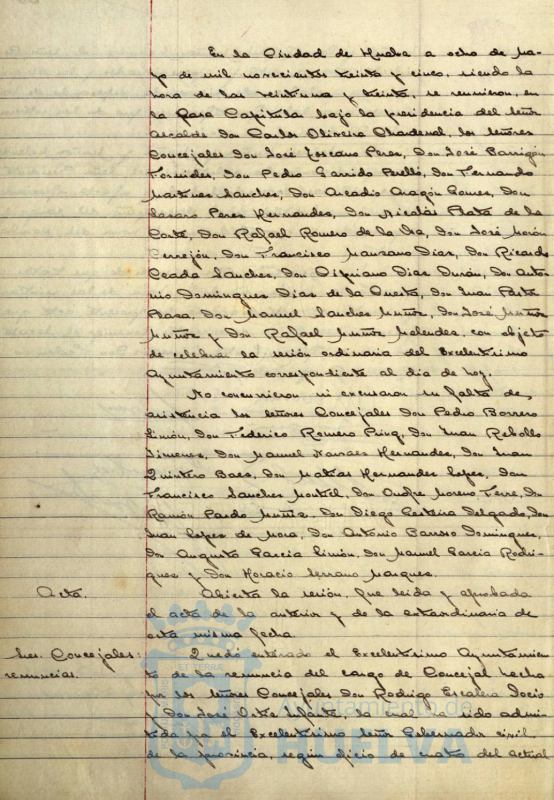 En la Ciudad de Huelva a ocho de ma-
yo de mil novecientos treinta y cinco, siendo la
hora de las veintiuna y treinta, se reunieron, en
la Casa Capitular bajo la presidencia del señor
Alcalde don Carlos Oliveira Chardenal, los señores
Concejales don José Toscano Perez, don José Barrigón
Fornieles, don Pedro Garrido Perelló, don Fernando
Martinez Sanchez, don Arcadio Aragón Gomez, don
Lazaro Perez Hernandez, don Nicolás Plata de la
Corte, don Rafael Romero de la Isa, don José Morón
Cerrejón, don Francisco Manzano Diaz, don Ricardo
Ceada Sanchez, don Cipriano Diaz Durán, don Anto-
nio Dominguez Diaz de la Cuesta, don Juan
don Manuel Sanchez Muñoz, don José Muñoz
Muñoz y don Rafael Muñoz Melendez, con objeto
de celebrar la sesión ordinaria del Excelentísimo
Ayuntamiento correspondiente al dia de hoy.
No concurrieron ni excusaron su falta de
asistencia los señores Concejales don Pedro Borrero
Limón, don Federico Romero don Juan Rebollo
Jimenez, don Manuel Narvaez Hernandez, don Juan
Quintero Baez, don Matías Hernandez Lopez, don
Francisco Sanchez don Andre Moreno don
Ramón Pardo Muñiz, don Diego Delgado, don
Juan Lopez de Mora, don António Barroso Dominguez,
don Augusto Garcia Limón, don Manuel Garcia Rodri-
guez y don Horacio Serrano Marquez.
Acta.
Abierta la sesión, fue leida y aprobada
el acta de la anterior y de la extraordinaria de
esta misma fecha.
Sres. Concejales:
renuncias.
Quedó enterado el Excelentísimo Ayuntamien-
to de la renuncia del cargo de Concejal hecha
por los señores Concejales don Rodrigo Escalera
y don José Ortiz Infante, la cual ha sido admi-
tida por el Excelentísimo señor Gobernador civil
de la provincia, según oficio de cuatro del actual
ET TERRÆ
Ayuntamiento de
HUELVA